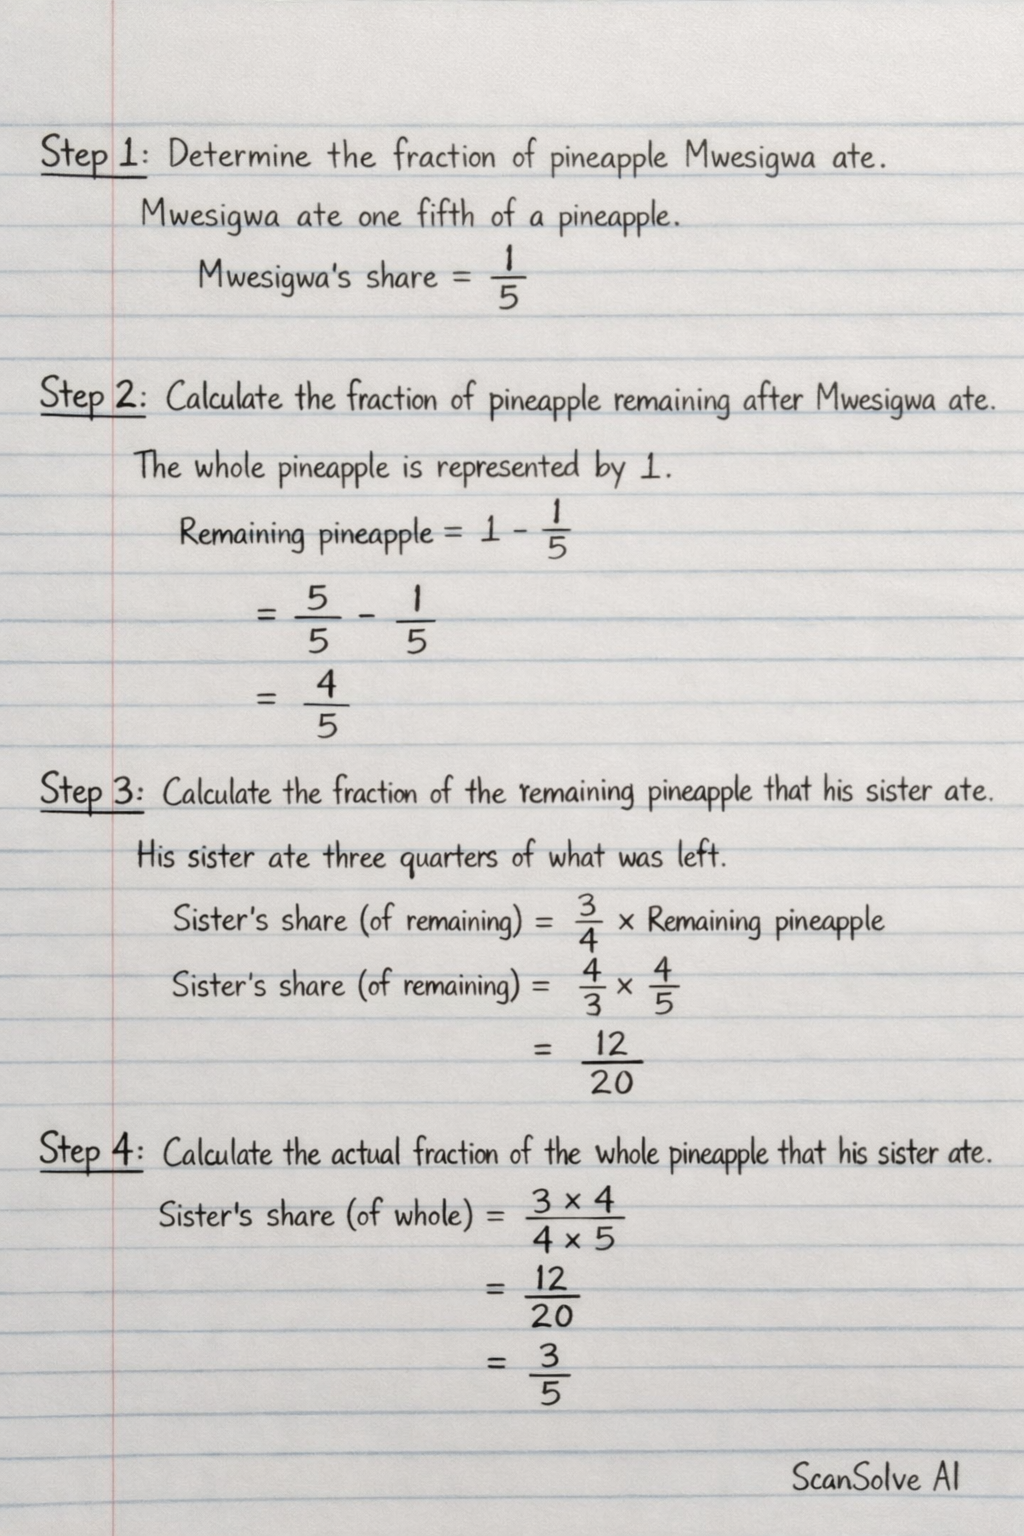 Step 1: Determine the fraction of pineapple Mwesigwa ate.
Mwesigwa ate one fifth of a pineapple.
Mwesigwa's share = 1/5
Step 2: Calculate the fraction of pineapple remaining after Mwesigwa ate.
The whole pineapple is represented by 1.
Remaining pineapple = 1 - 1/5
= 5/5 - 1/5
= 4/5
Step 3: Calculate the fraction of the remaining pineapple that his sister ate.
His sister ate three quarters of what was left.
Sister's share (of remaining) = 3/4 × Remaining pineapple
Sister's share (of remaining) = 4/3 × 4/5
= 12/20
Step 4: Calculate the actual fraction of the whole pineapple that his sister ate.
Sister's share (of whole) = 3 × 4 / 4 × 5
= 12/20
= 3/5
ScanSolve AI